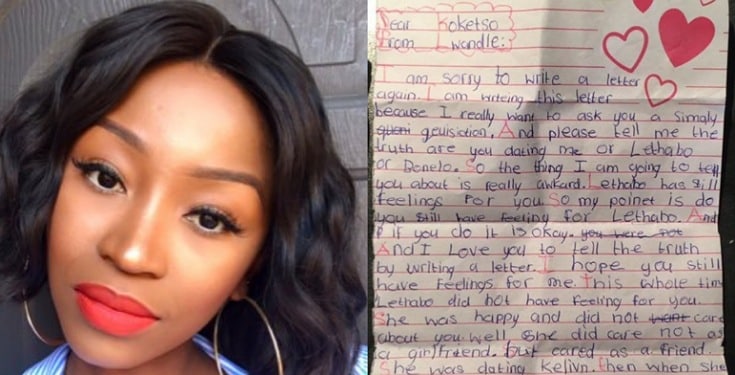 Dear Koketso
From Lwandle:
I am sorry to write a letter
again. I am writeing this letter
because I really want to ask you a Simaly
geuisiction. And please tell me the
truth are you dating me or Lethabo
or Donelo. So the thing I am going to tell
you about is really awkard. Lethabo has still
feelings for you. So my poinet is do
you still have feeling for Lethabo. And
if you do it is okay. you were not
And I Love you to tell the truth
by writing a letter. I hope you still
have feelings for me. This whole time
Lethabo did not have feeling for you.
She was happy and did not want care
about you well she did care not as
a girlfriend. but cared as a friend.
She was dating Kelivn. then when she